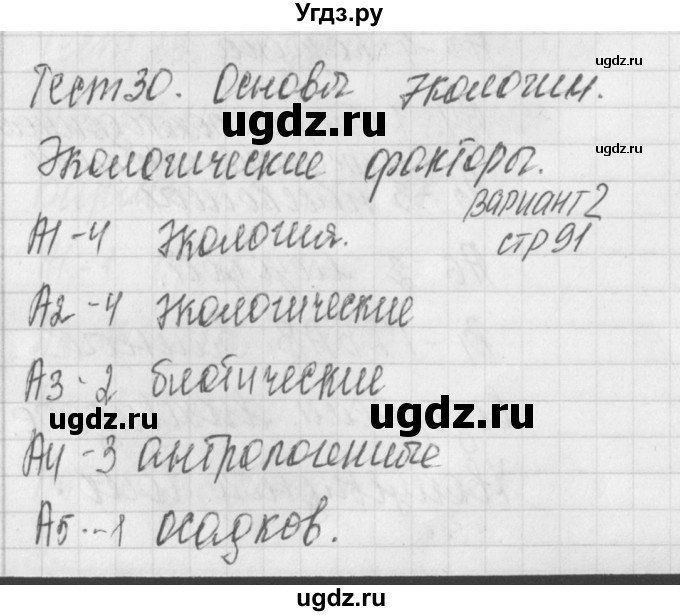 Угдз.ру
Тест 30. Основы экологии.
Экологические факторы.
Вариант 2
стр 91
А1-4 Экология.
А2-4 экологические
А3-2 биотические
А4-3 антропогенные
А5-1 осадков.
ugdz.ru
ugdz.ru
ugdz.ru
ugdz.ru
ugdz.ru
ugdz.ru
ugdz.ru
ugdz.ru
ugdz.ru